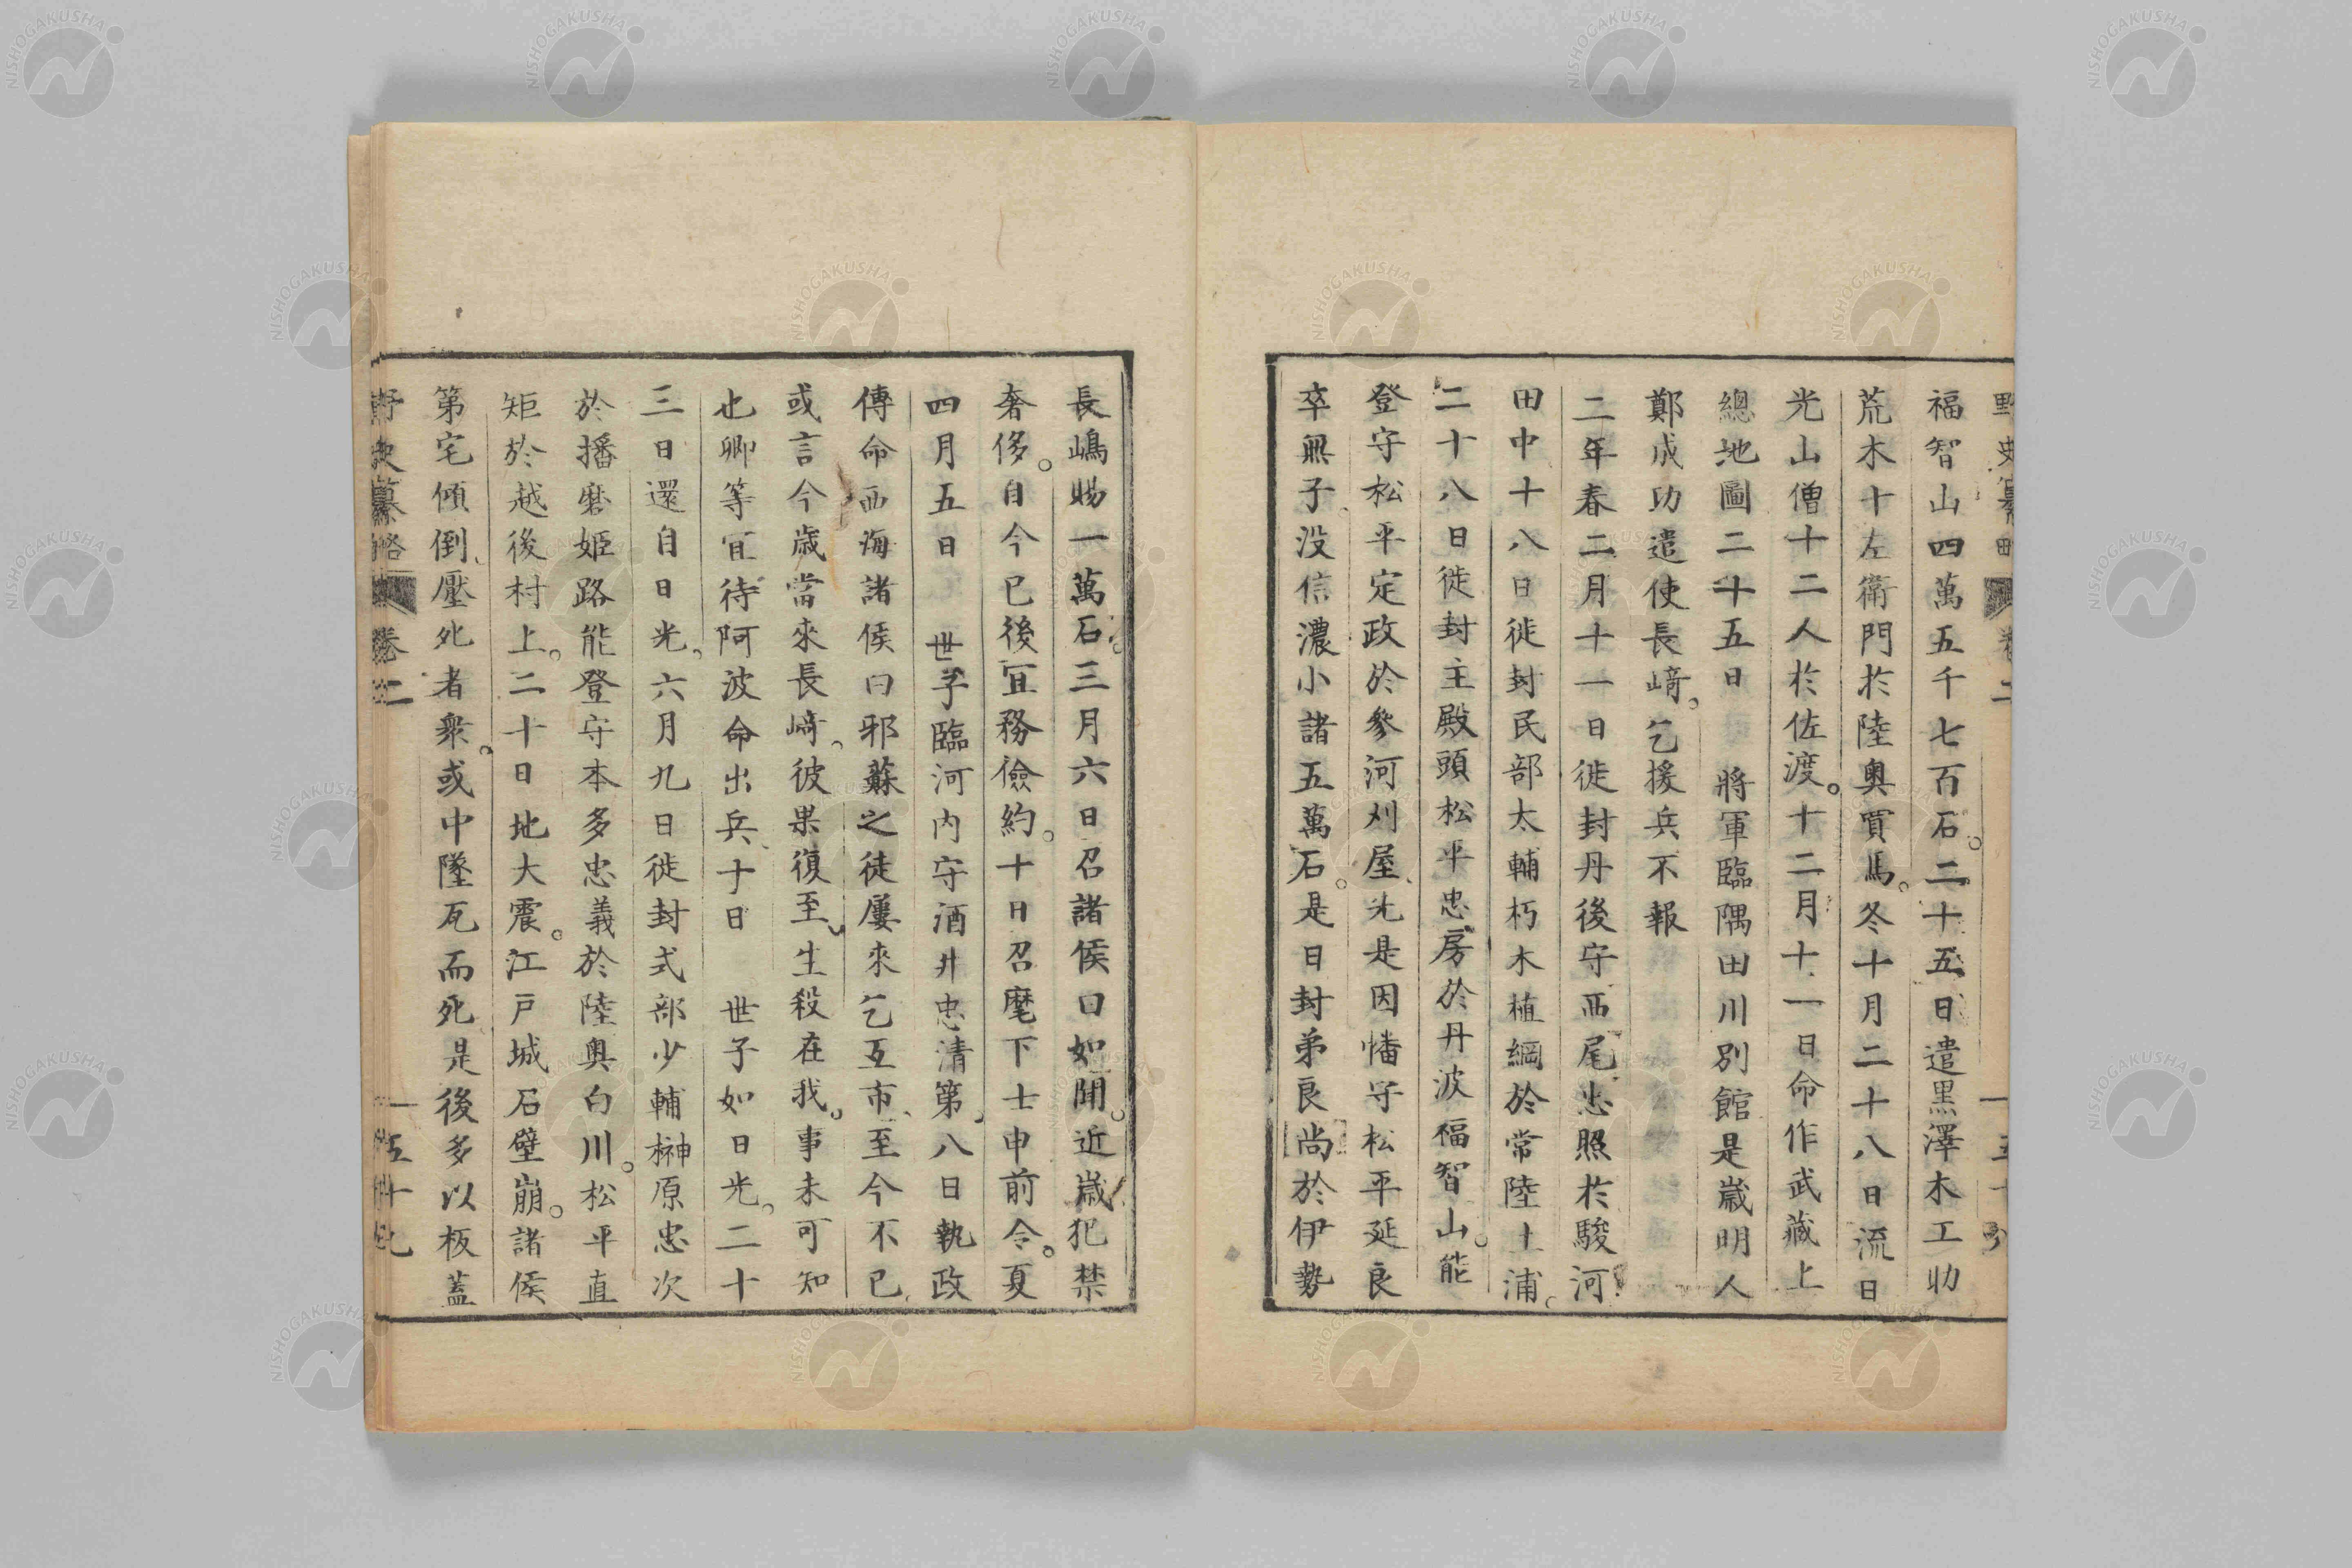 福智山四萬五千七百石。二十五日遣黒澤木工助
荒木十左衛門於陸奥買馬。冬十月二十八日流日
光山僧十二人於佐渡。十二月十一日命作武藏上
總地圖二十五日 將軍臨隅田川別館是歳明人
鄭成功遣使長﨑。乞援兵不報
二年春二月十一日徙封丹後守西尾忠照於駿河
田中十八日徙封民部太輔朽木植綱於常陸土浦。
二十八日徙封主殿頭松平忠房於丹波福智山。能
登守松平定政於參河刈屋、先是因幡守松平延良
卒無子。没信濃小諸五萬石。是日封弟良尚於伊勢
長嶋賜一萬石。三月六日召諸侯曰如聞。近歳犯禁
奢侈。自今已後宜務儉約。十日召麾下士申前令。夏
四月五日 世子臨河内守酒井忠清第、八日執政
傳命西海諸侯曰邪蘇之徒屢來乞互市、至今不已、
或言今歳當來長﨑。彼果復至、生殺在我。事未可知
也卿等宜待阿波命出兵、十日 世子如日光。二十
三日還自日光。六月九日徙封式部少輔榊原忠次
於播磨姫路能登守本多忠義於陸奥白川。松平直
矩於越後村上。二十日地大震。江戸城石壁崩。諸侯
第宅傾倒、壓死者衆。或中墜瓦而死是後多以板蓋
野史纂略 卷二 一五十九